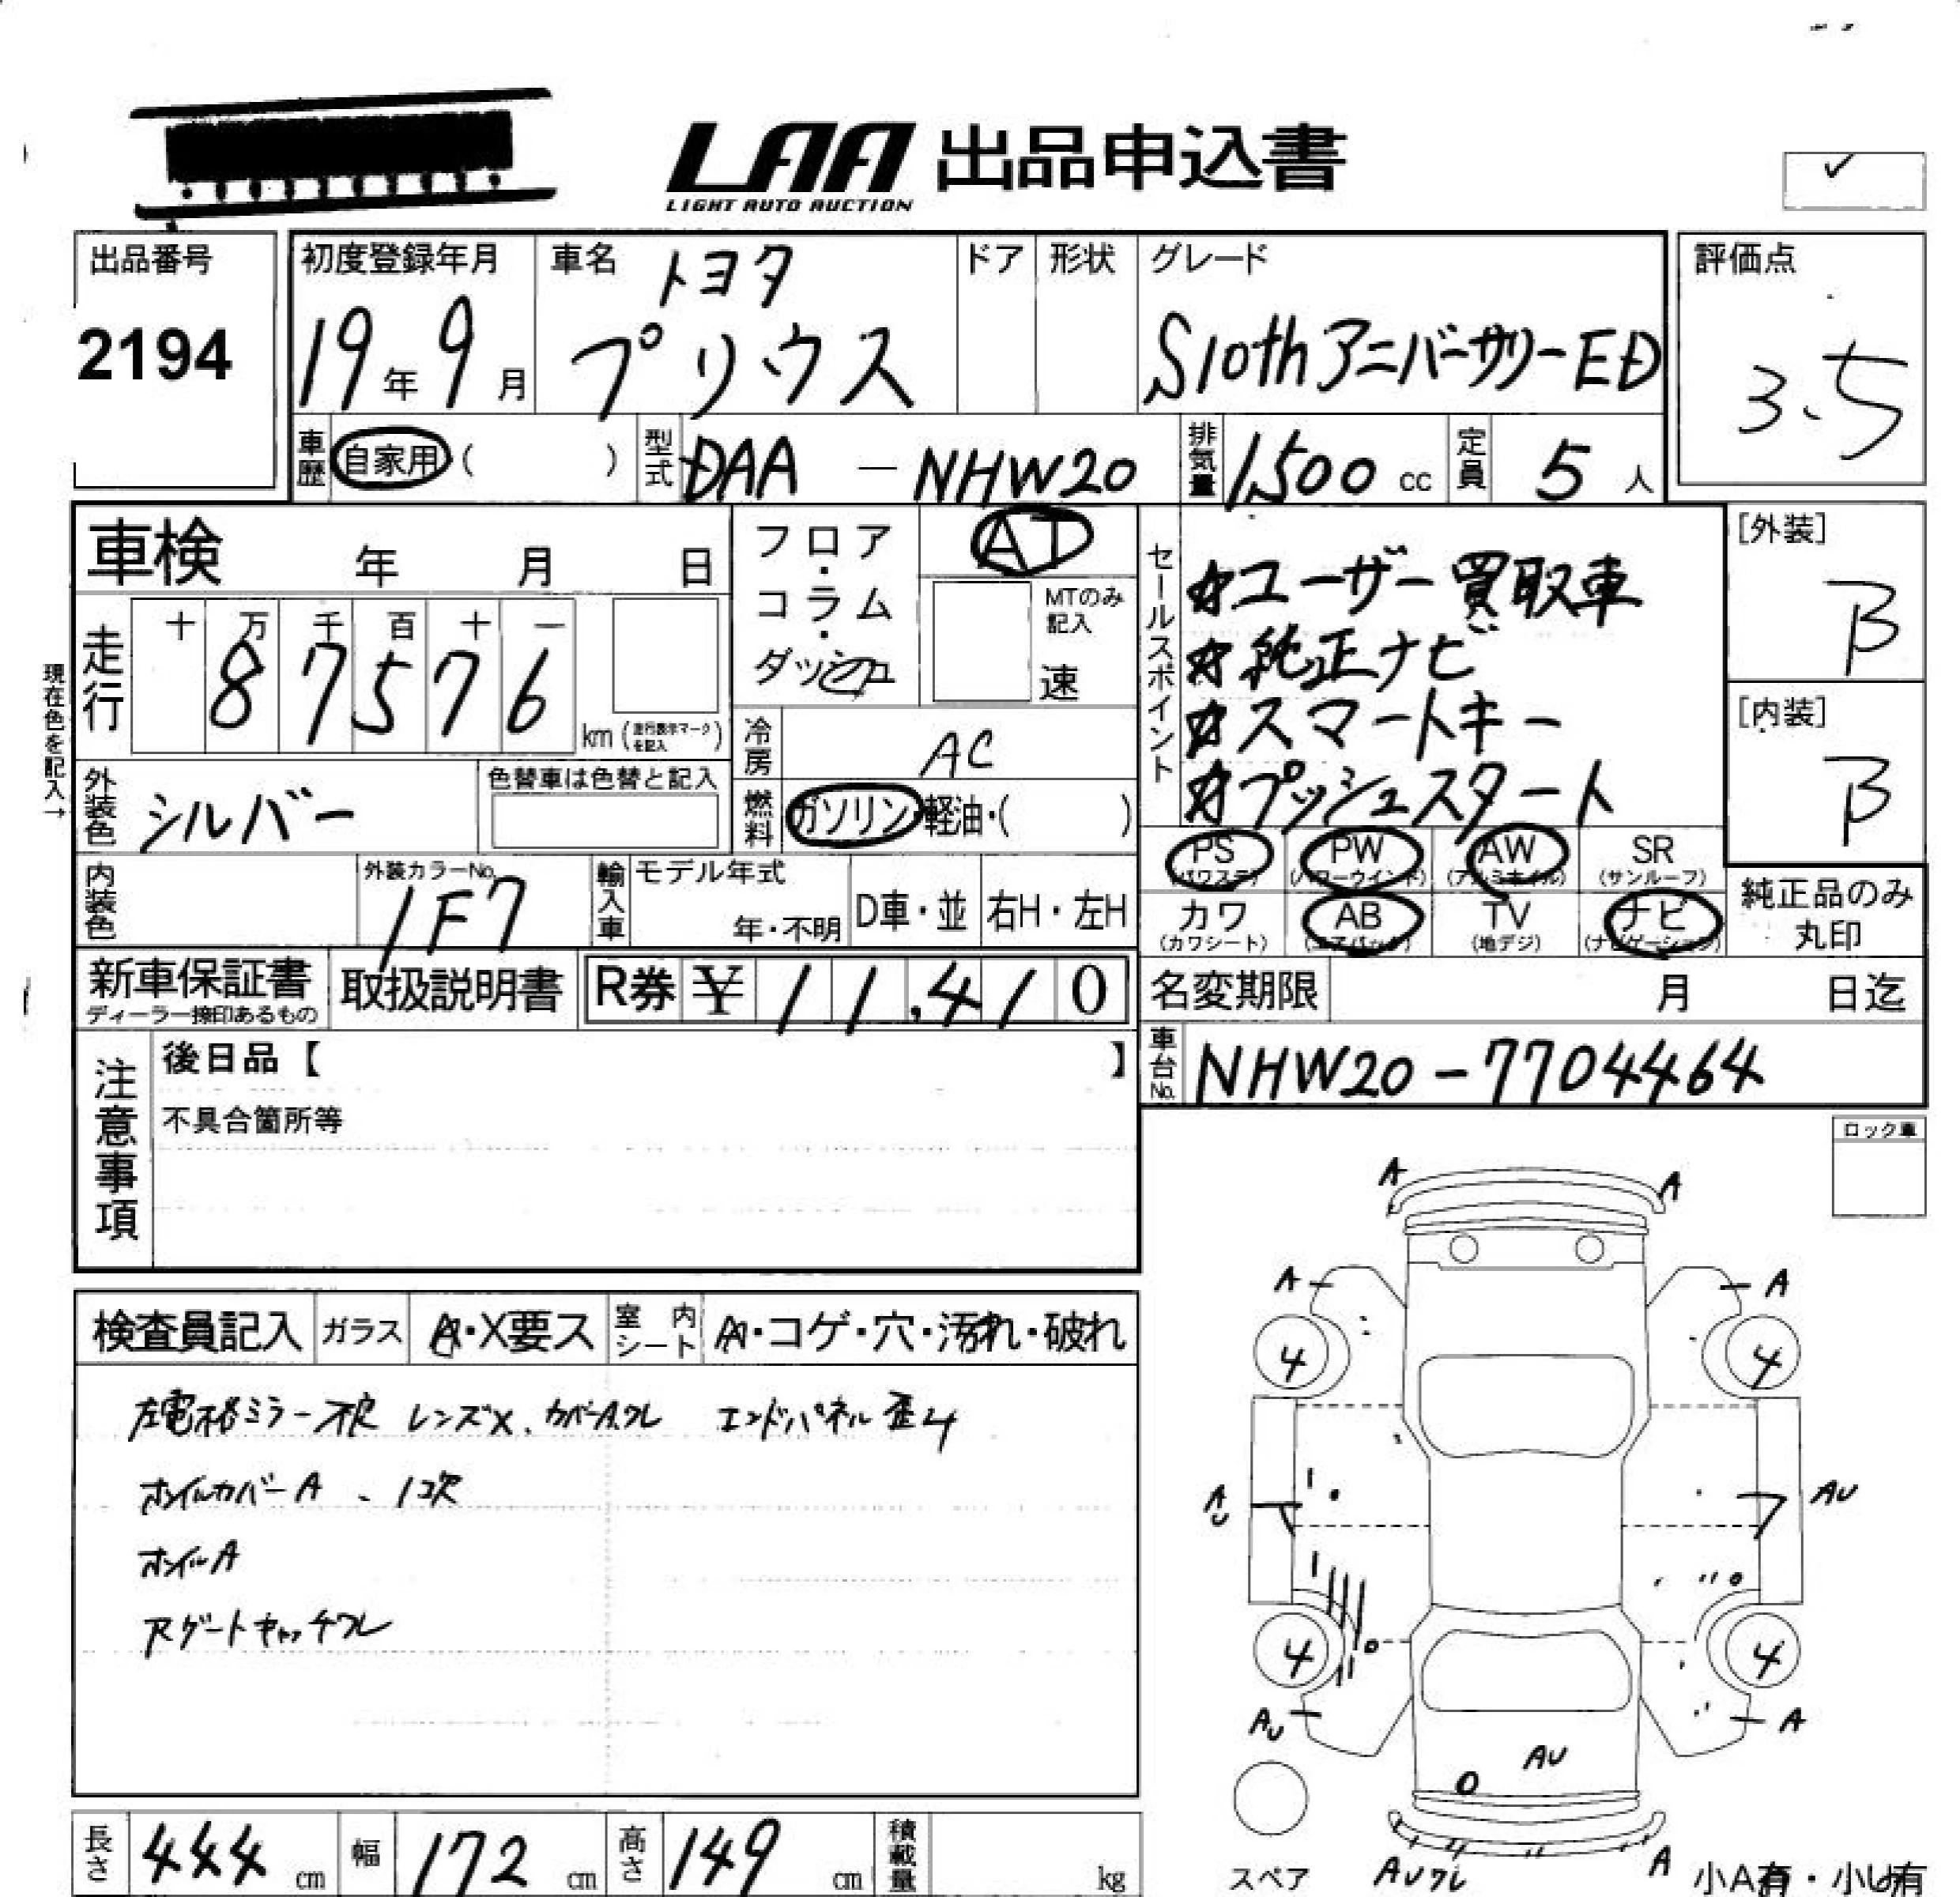 LAA 出品申込書
LIGHT AUTO AUCTION
出品番号
2194
初度登録年月
19年9月
車名
トヨタ
プリウス
ドア
形状
グレード
S10thアニバーサリーED
評価点
3.5
車歴 自家用 ( )
型式 DAA - NHW20
排気量 1500 cc
定員 5 人
車検 年 月 日
フロア・コラム・ダッシュ
AT
MTのみ記入
速
セールスポイント
☆ユーザー買取車
☆純正ナビ
☆スマートキー
☆プッシュスタート
[外装]
B
[内装]
B
現在色を記入→
走行
十 万 千 百 十 一
8 7 5 7 6
km (走行表示マークを記入)
冷房 AC
外装色 シルバー
色替車は色替と記入
燃料 ガソリン・軽油・( )
PS (パワステ)
PW (パワーウインド)
AW (アルミホイル)
SR (サンルーフ)
カワ (カワシート)
AB (エアバック)
TV (地デジ)
ナビ (ナビゲーション)
純正品のみ丸印
内装色
外装カラーNo.
1F7
輸入車
モデル年式
年・不明
D車・並
右H・左H
新車保証書
ディーラー捺印あるもの
取扱説明書
R券 ¥ 11,410
名変期限 月 日迄
車台No. NHW20-7704464
注意事項
後日品【 】
不具合箇所等
ロック車
検査員記入
ガラス
A・X要ス
室内シート
A・コゲ・穴・汚れ・破れ
左電格ミラー不良 レンズX、カバーA,ワレ エンドパネル歪4
ホイルカバーA、1コ欠
ホイルA
Rゲートキャッチワレ
A A
A A
4 4
AU AU
4 4
AU A
AU
AUワレ A
スペア
小A有・小U有
長さ 444 cm
幅 172 cm
高さ 149 cm
積載量 kg